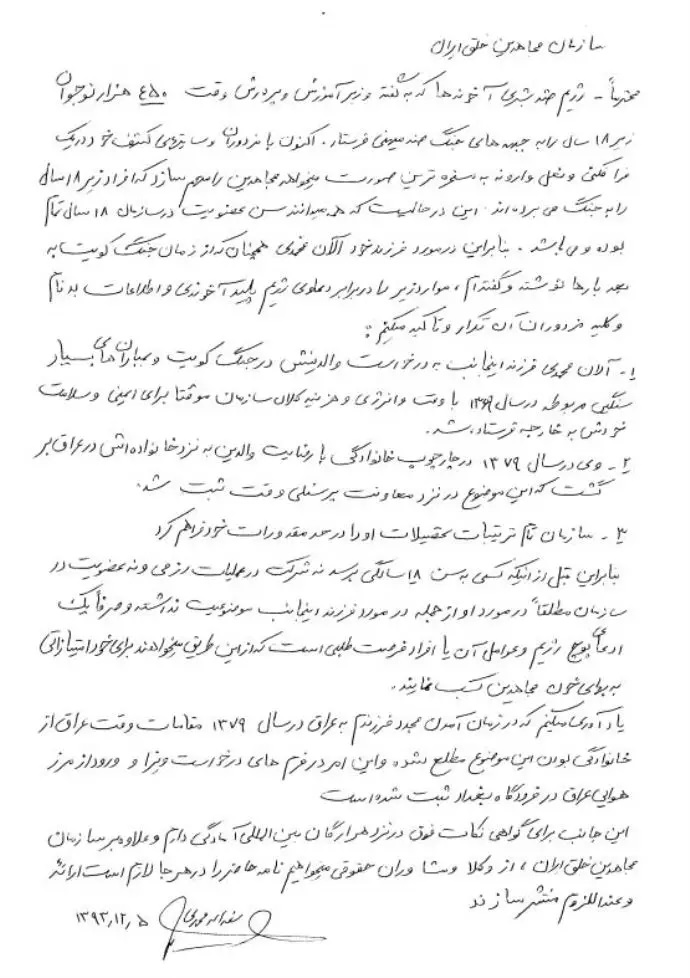 سازمان مجاهدین خلق ایران
محترماً - رژیم ضد بشری آخوندها که به گفته وزیر آموزش و پرورش وقت ۴۵۰ هزار نوجوان
زیر ۱۸ سال را به جبهه های جنگ ضد میهنی فرستاد. اکنون با مزدوران و ساپتروی کثیف خود در یک
فرافکنی و نعل وارونه به مسخره ترین صورت میخواهد مجاهدین را متهم سازد که افراد زیر ۱۸ سال
را به جنگ می برده اند. این در حالیست که همه میدانند سن عضویت در سازمان ۱۸ سال تمام
بوده و می باشد. بنابراین در مورد فرزند خود آلان محمدی همچنان که از زمان جنگ کویت به
بعد بارها نوشته و گفته ام، موارد زیر را در برابر دعاوی رژیم پلید آخوندی و اطلاعات بدنام
و کلیه مزدوران آن تکرار و تأکید میکنم:
۱- آلان محمدی فرزند اینجانب به درخواست والدینش در جنگ کویت و بمباران های بسیار
سنگین مربوطه در سال ۱۳۶۹ با وقت و انرژی و هزینه کلان سازمان موقتاً برای ایمنی و سلامت
خودش به خارجه فرستاده شد.
۲- وی در سال ۱۳۷۹ در چارچوب خانوادگی با رضایت والدین به نزد خانواده اش در عراق بر
گشت که این موضوع در نزد معاونت پرسنلی وقت ثبت شد.
۳- سازمان تمام ترتیبات تحصیلات او را در حد مقدورات خود فراهم کرد
بنابراین قبل از اینکه کسی به سن ۱۸ سالگی برسد نه شرکت در عملیات رزمی و نه عضویت در
سازمان مطلقاً در مورد او از جمله در مورد فرزند اینجانب موضوعیت نداشته و صرفاً یک
ادعای پوچ رژیم و عوامل آن یا افراد فرصت طلبی است که از این طریق میخواهند برای خود امتیازاتی
به بهای خون مجاهدین کسب نمایند.
یادآوری میکنم که در زمان آمدن مجدد فرزندم به عراق در سال ۱۳۷۹ مقامات وقت عراق از
خانوادگی بودن این موضوع مطلع شده و این امر در فرم های درخواست ویزا و ورود از مرز
هوایی عراق در فرودگاه بغداد ثبت شده است
این جانب برای گواهی نکات فوق در نزد هر ارگان بین المللی آمادگی دارم و علاوه بر سازمان
مجاهدین خلق ایران، از وکلا و مشاوران حقوقی میخواهم نامه حاضر را در هر جا لازم است ارائه
و عنداللزوم منتشر سازند
محمدی ۱۳۹۳,۱۲,۵